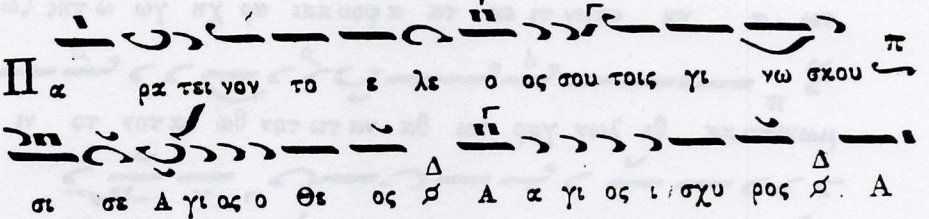 Πα ρα τει νον το ε λε ο ος σου τοις γι νω σκου π
σι σε Α γι ος ο Θε ος Δ Α α γι ος ι σχυ ρος Δ Α